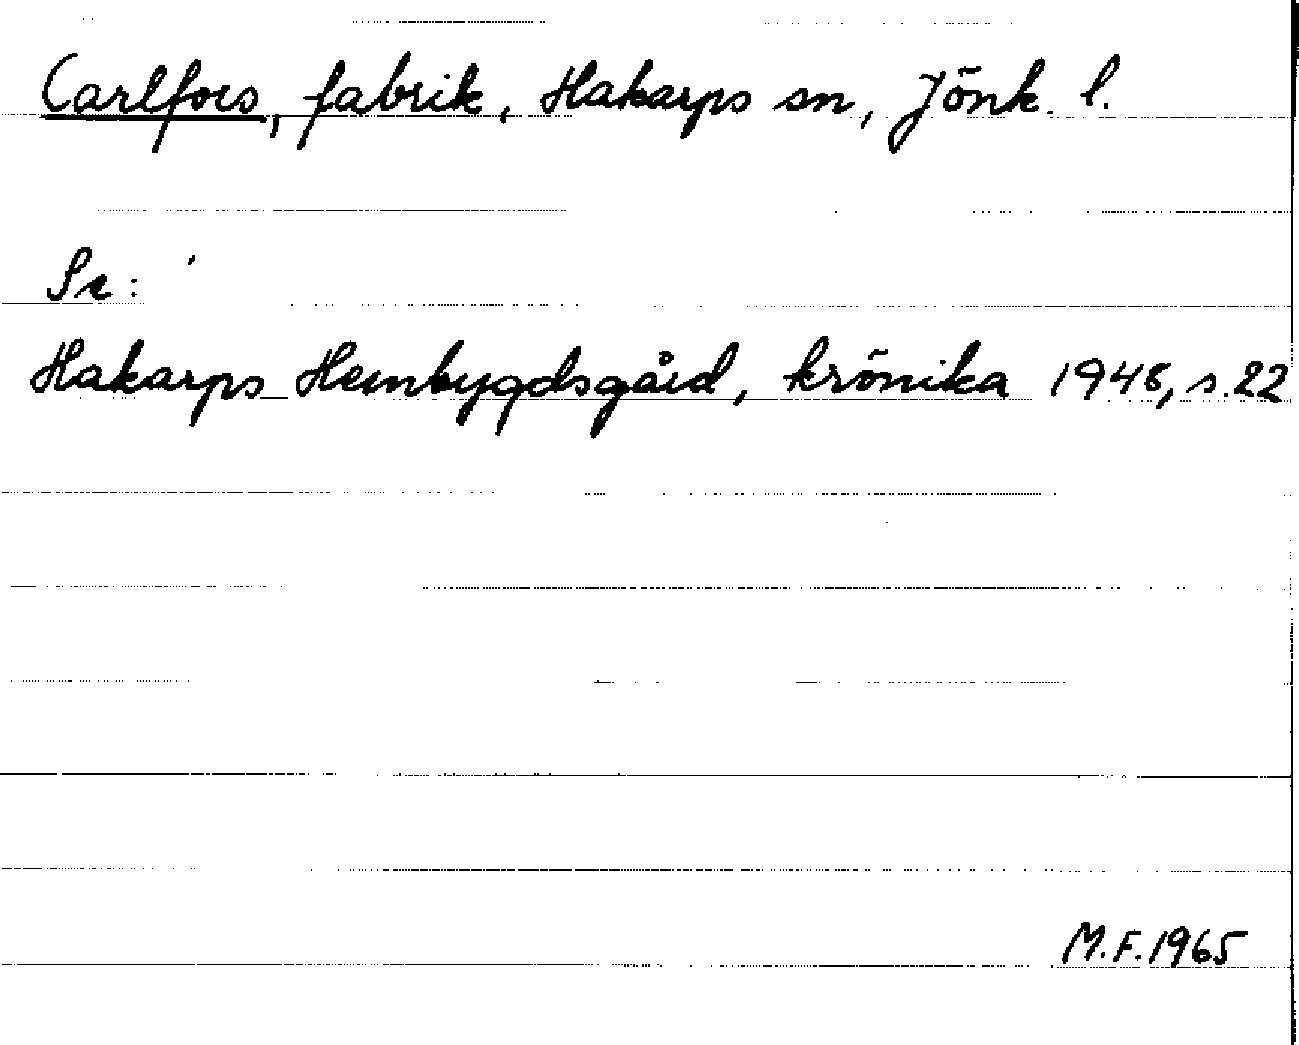 Carlfors, fabrik, Hakarps sn, Jönk. l.
Se:
Hakarps Hembygdsgård, krönika 1948, s. 22
M.F. 1965